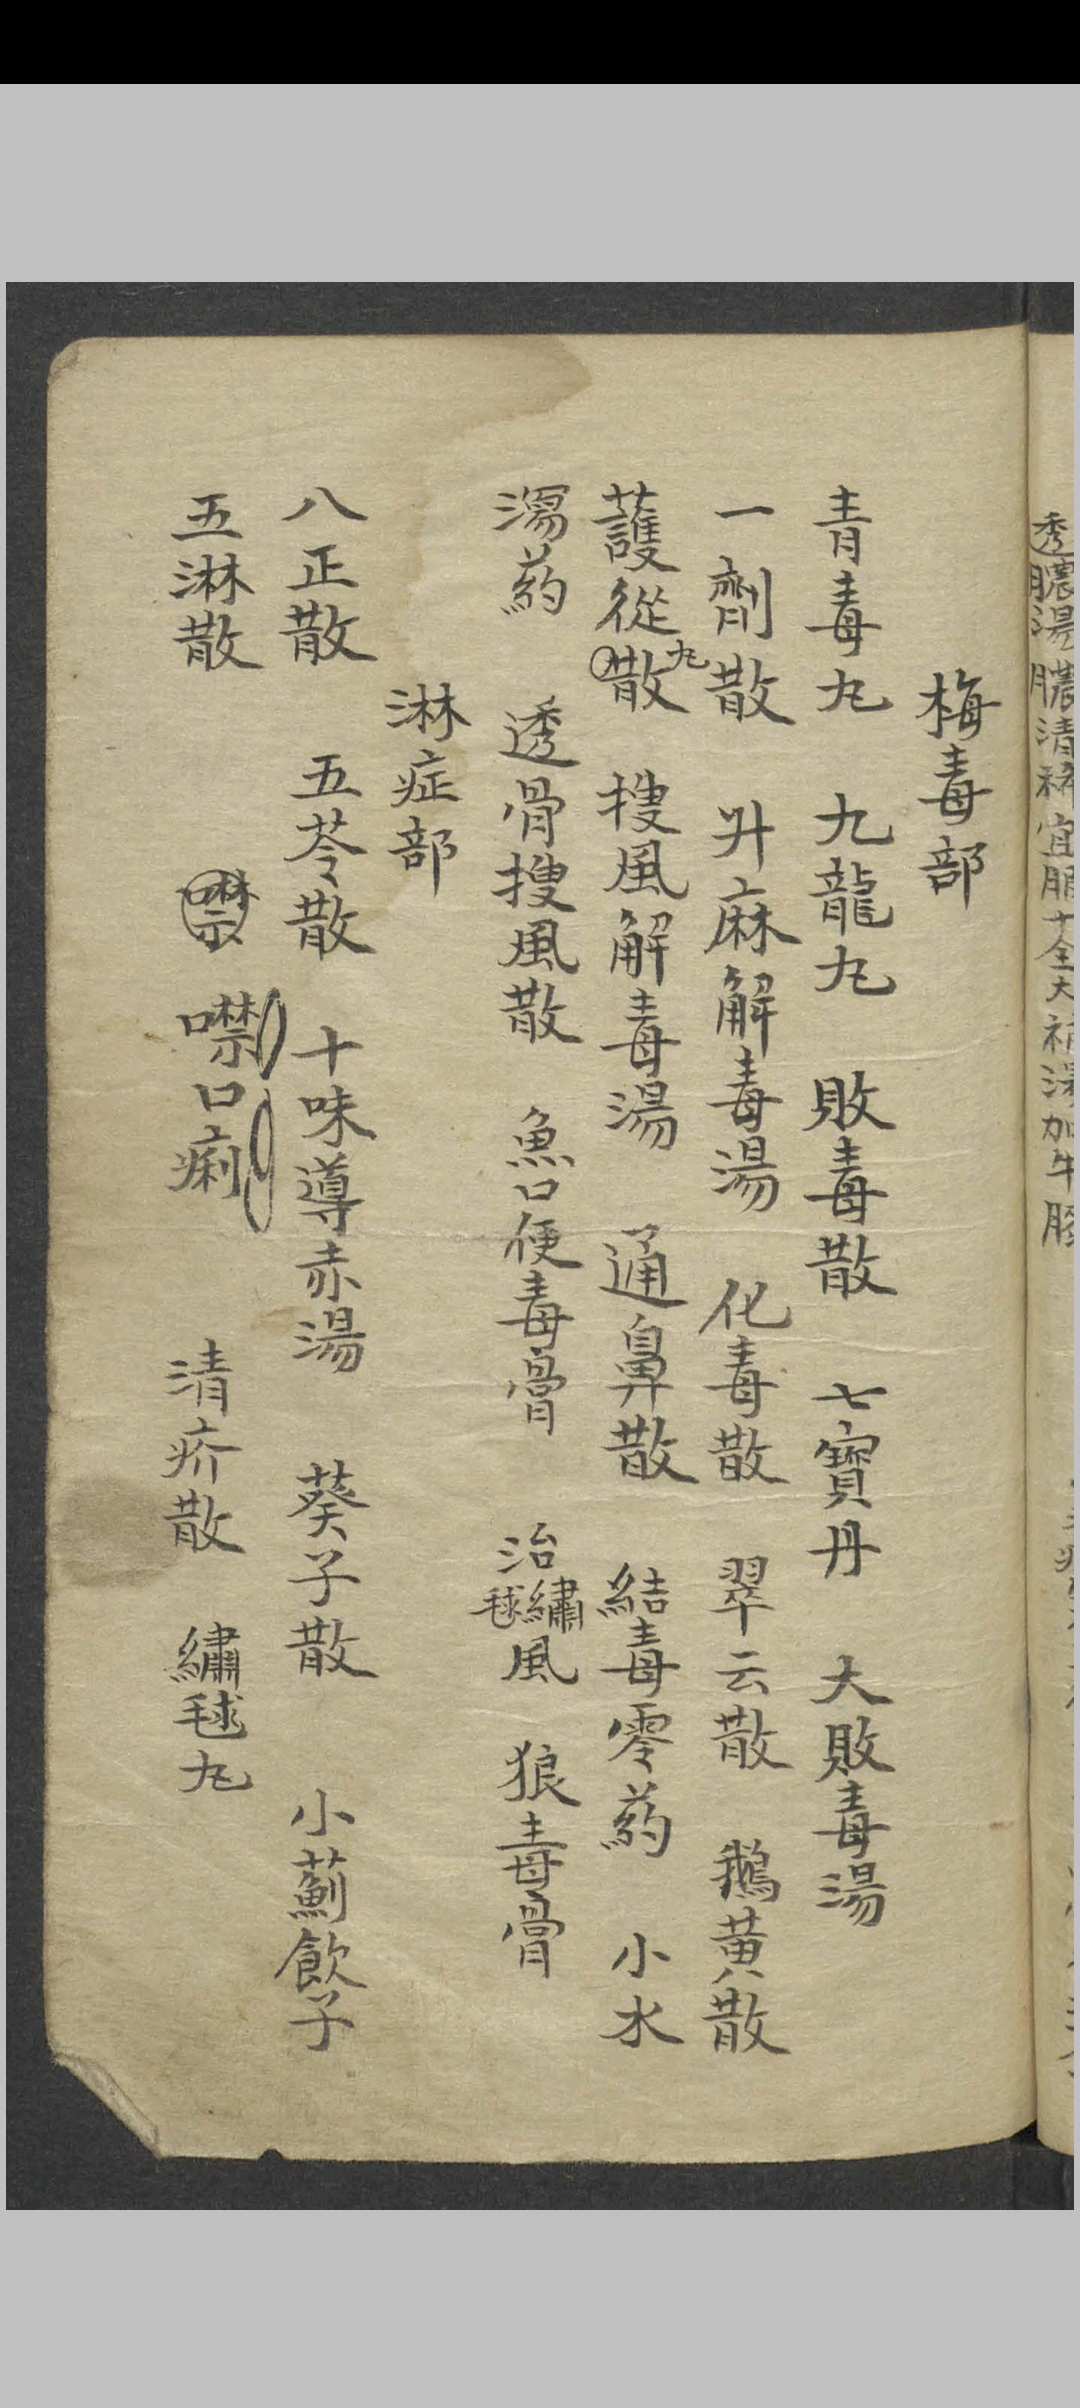 透膿湯膿清稀宜服十全大補湯加牛膝
梅毒部
青毒丸 九龍丸 敗毒散 七寶丹 大敗毒湯
一劑散 升麻解毒湯 化毒散 翠云散 鵝黃散
護從散丸 搜風解毒湯 通鼻散 結毒零葯 小水
湯葯 透骨搜風散 魚口便毒膏 治繡毬風 狼毒膏
淋症部
八正散 五苓散 十味導赤湯 葵子散 小薊飲子
五淋散 噤 噤口痢 清疥散 繡毬丸